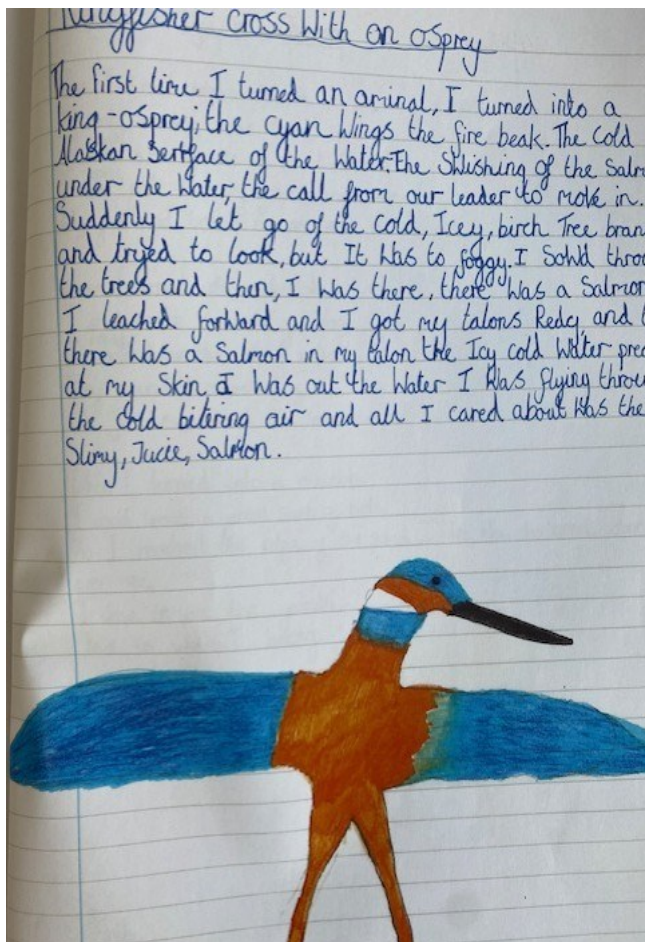 Kingfisher cross with an osprey
The first time I turned an aminal, I turned into a
king-osprey; the cyan wings the fire beak. The cold
Alaskan sertface of the water. The swishing of the Salm
under the water, the call from our leader to move in.
Suddenly I let go of the cold, Icey, birch Tree bran
and tryed to look, but It was to foggy. I Sowd throu
the trees and then, I was there, there was a Salmon
I leached forward and I got my talons Redey, and
there was a Salmon in my talon the Icy cold water
at my Skin, I was out the water I was flying throu
the cold bitering air and all I cared about was the
Slimy, Jucie, Salmon.